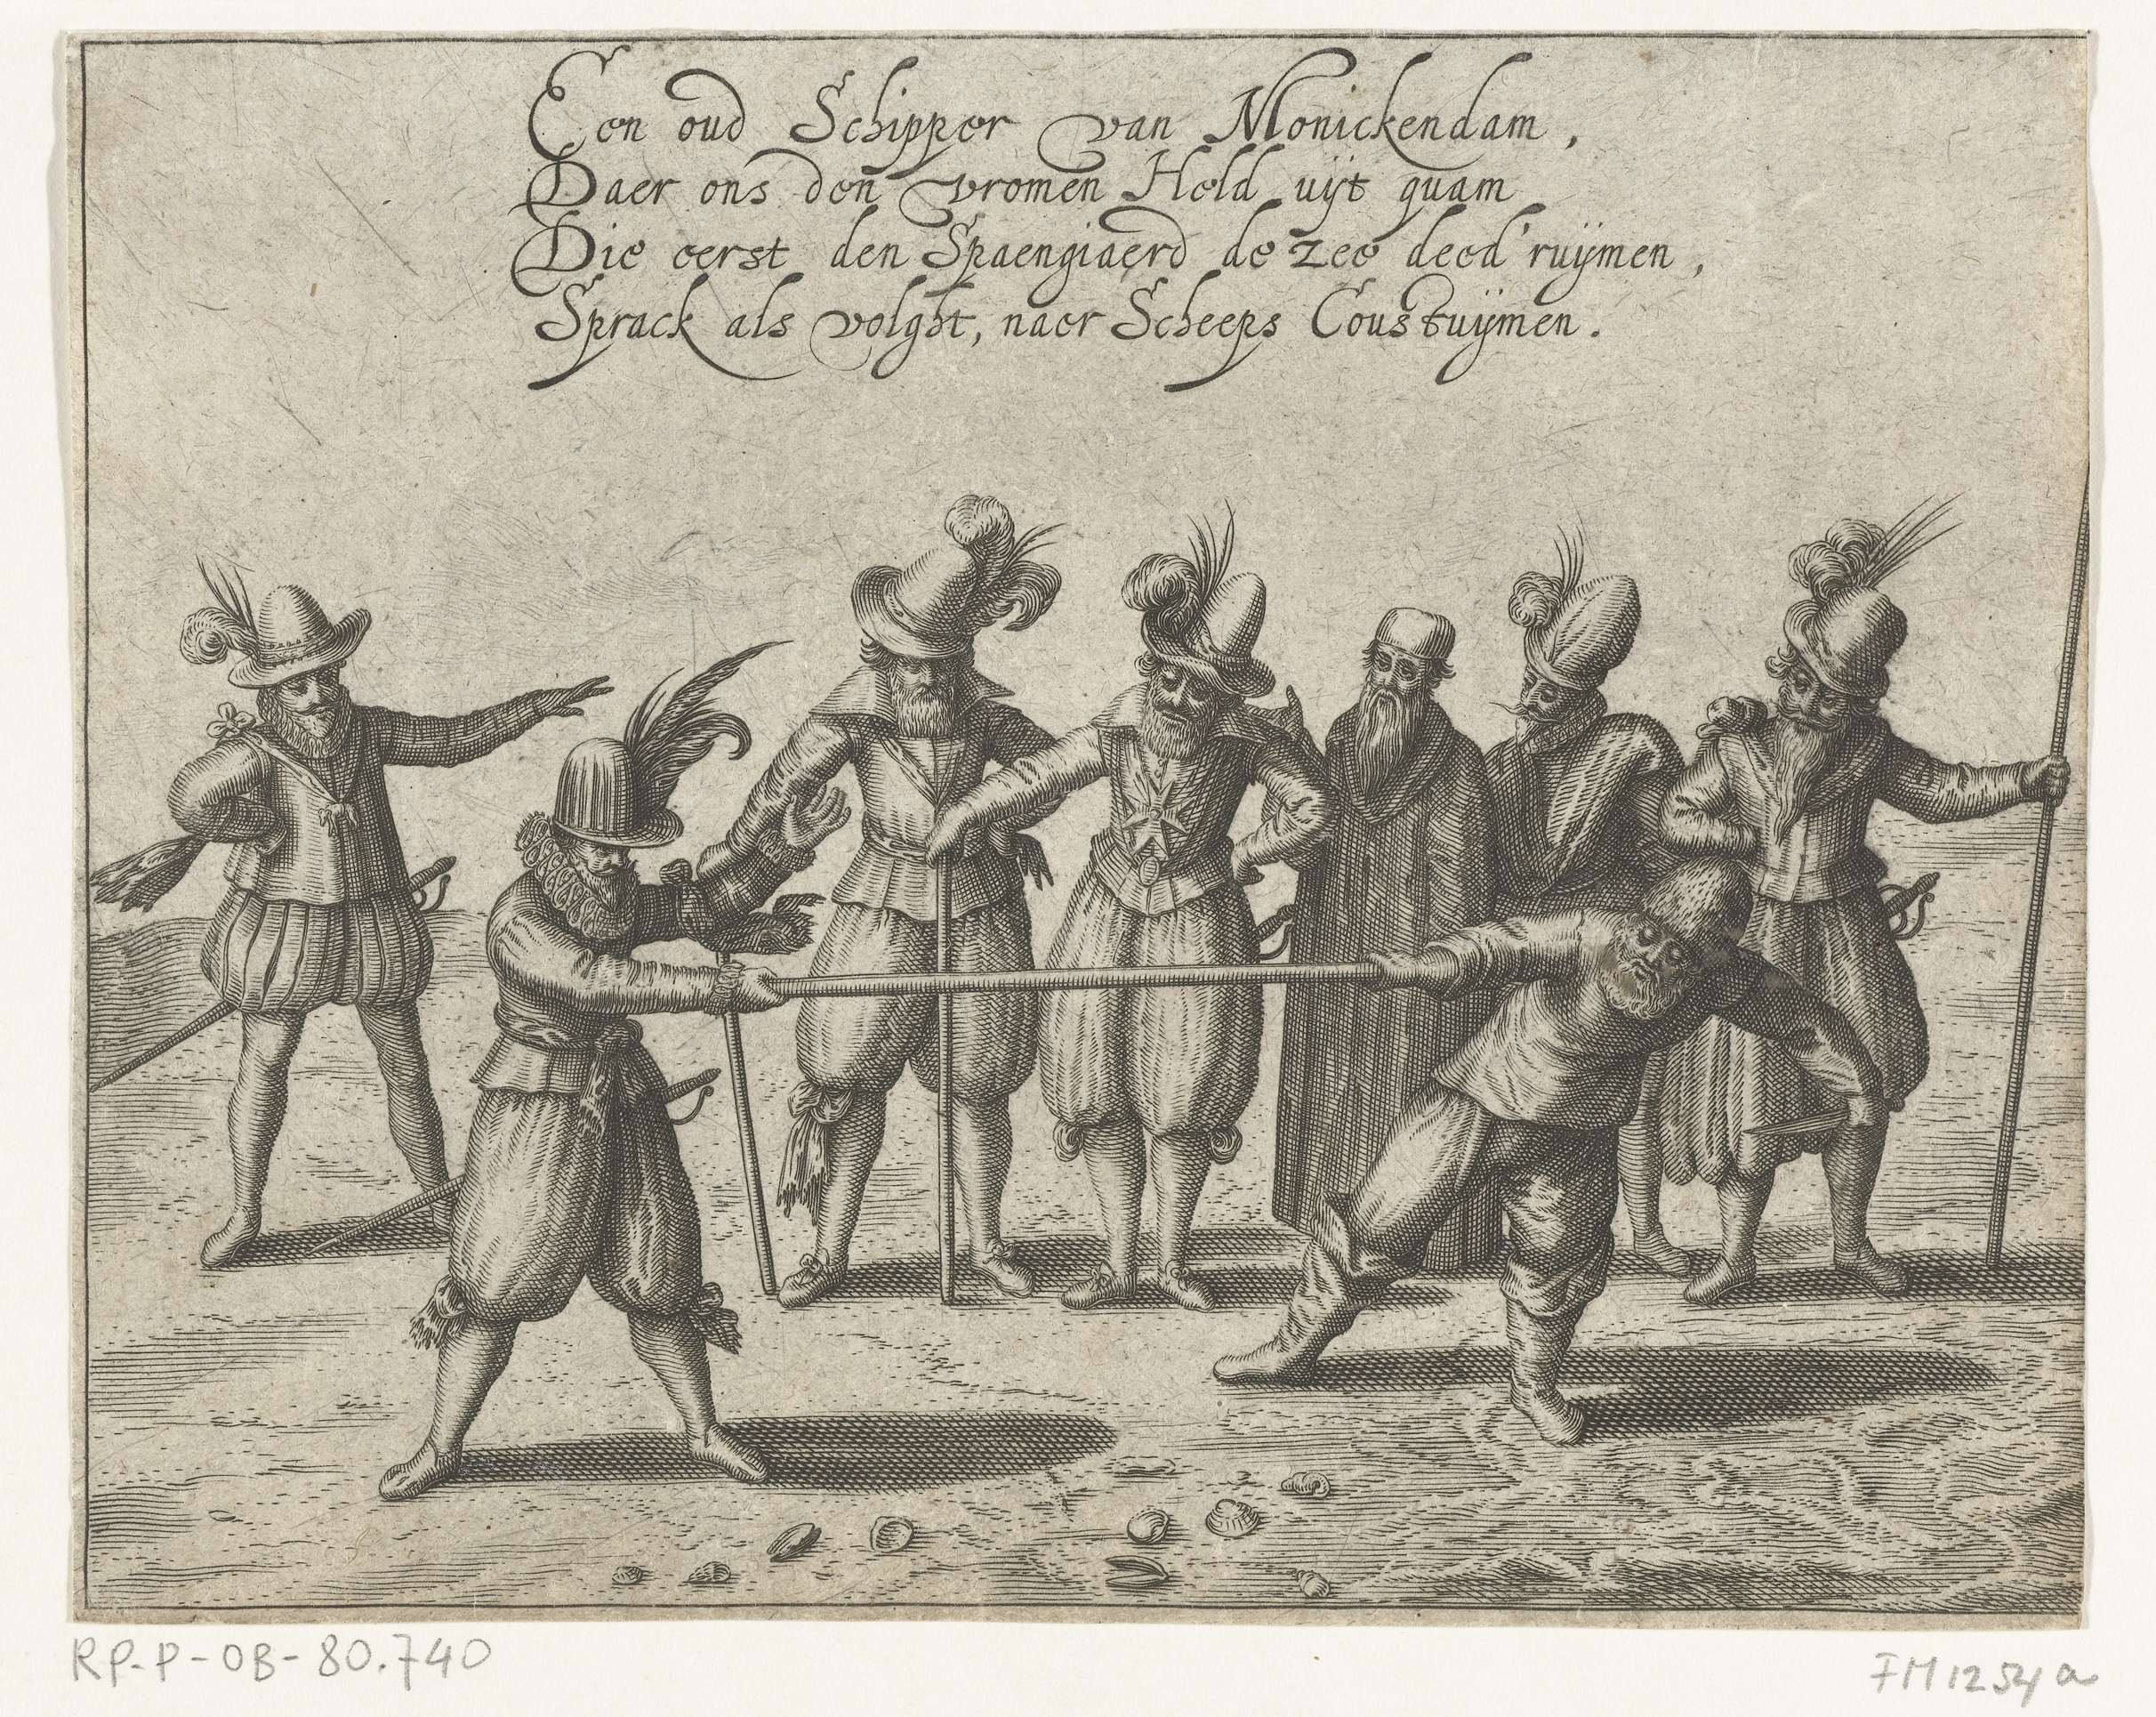 Een oud Schipper van Monickendam,
Daer ons den vromen Held uyt quam
Die eerst den Spaengiaerd de zee deed' ruymen,
Sprack als volght, naer Scheeps Coustuymen.
RP-P-OB-80.740
FM1254a